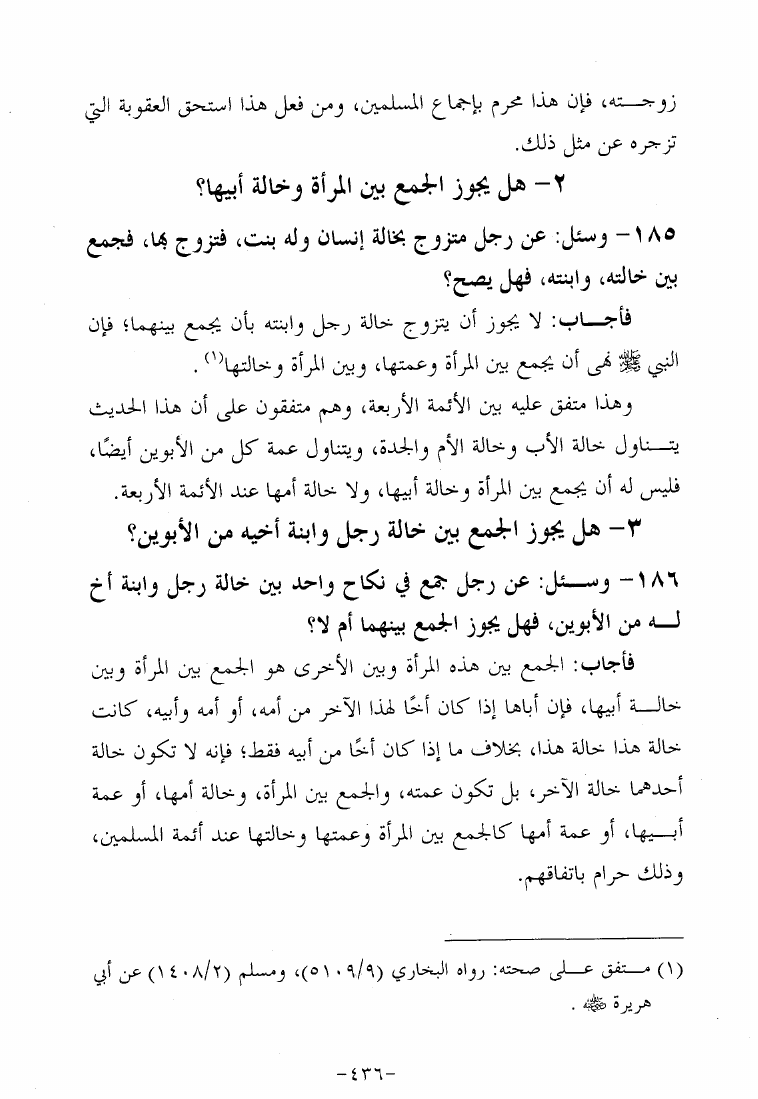 زوجـــته، فإن هذا محرم بإجماع المسلمين، ومن فعل هذا استحق العقوبة التي
تزجره عن مثل ذلك.
٢- هل يجوز الجمع بين المرأة وخالة أبيها؟
١٨٥- وسئل: عن رجل متزوج بخالة إنسان وله بنت، فتزوج بها، فجمع
بين خالته، وابنته، فهل يصح؟
فأجـــاب: لا يجوز أن يتزوج خالة رجل وابنته بأن يجمع بينهما؛ فإن
النبي ﷺ نهى أن يجمع بين المرأة وعمتها، وبين المرأة وخالتها(١).
وهذا متفق عليه بين الأئمة الأربعة، وهم متفقون على أن هذا الحديث
يتـــناول خالة الأب وخالة الأم والجدة، ويتناول عمة كل من الأبوين أيضًا،
فليس له أن يجمع بين المرأة وخالة أبيها، ولا خالة أمها عند الأئمة الأربعة.
٣- هل يجوز الجمع بين خالة رجل وابنة أخيه من الأبوين؟
١٨٦- وســـئل: عن رجل جمع في نكاح واحد بين خالة رجل وابنة أخ
لـــه من الأبوين، فهل يجوز الجمع بينهما أم لا؟
فأجاب: الجمع بين هذه المرأة وبين الأخرى هو الجمع بين المرأة وبين
خالـــة أبيها، فإن أباها إذا كان أخًا لهذا الآخر من أمه، أو أمه وأبيه، كانت
خالة هذا خالة هذا، بخلاف ما إذا كان أخًا من أبيه فقط؛ فإنه لا تكون خالة
أحدهما خالة الآخر، بل تكون عمته، والجمع بين المرأة، وخالة أمها، أو عمة
أبـــيها، أو عمة أمها كالجمع بين المرأة وعمتها وخالتها عند أئمة المسلمين،
وذلك حرام باتفاقهم.
(١) مـــتفق عـــلى صحته: رواه البخاري (٥١٠٩/٩)، ومسلم (١٤٠٨/٢) عن أبي
هريرة ﷺ.
-٤٣٦-